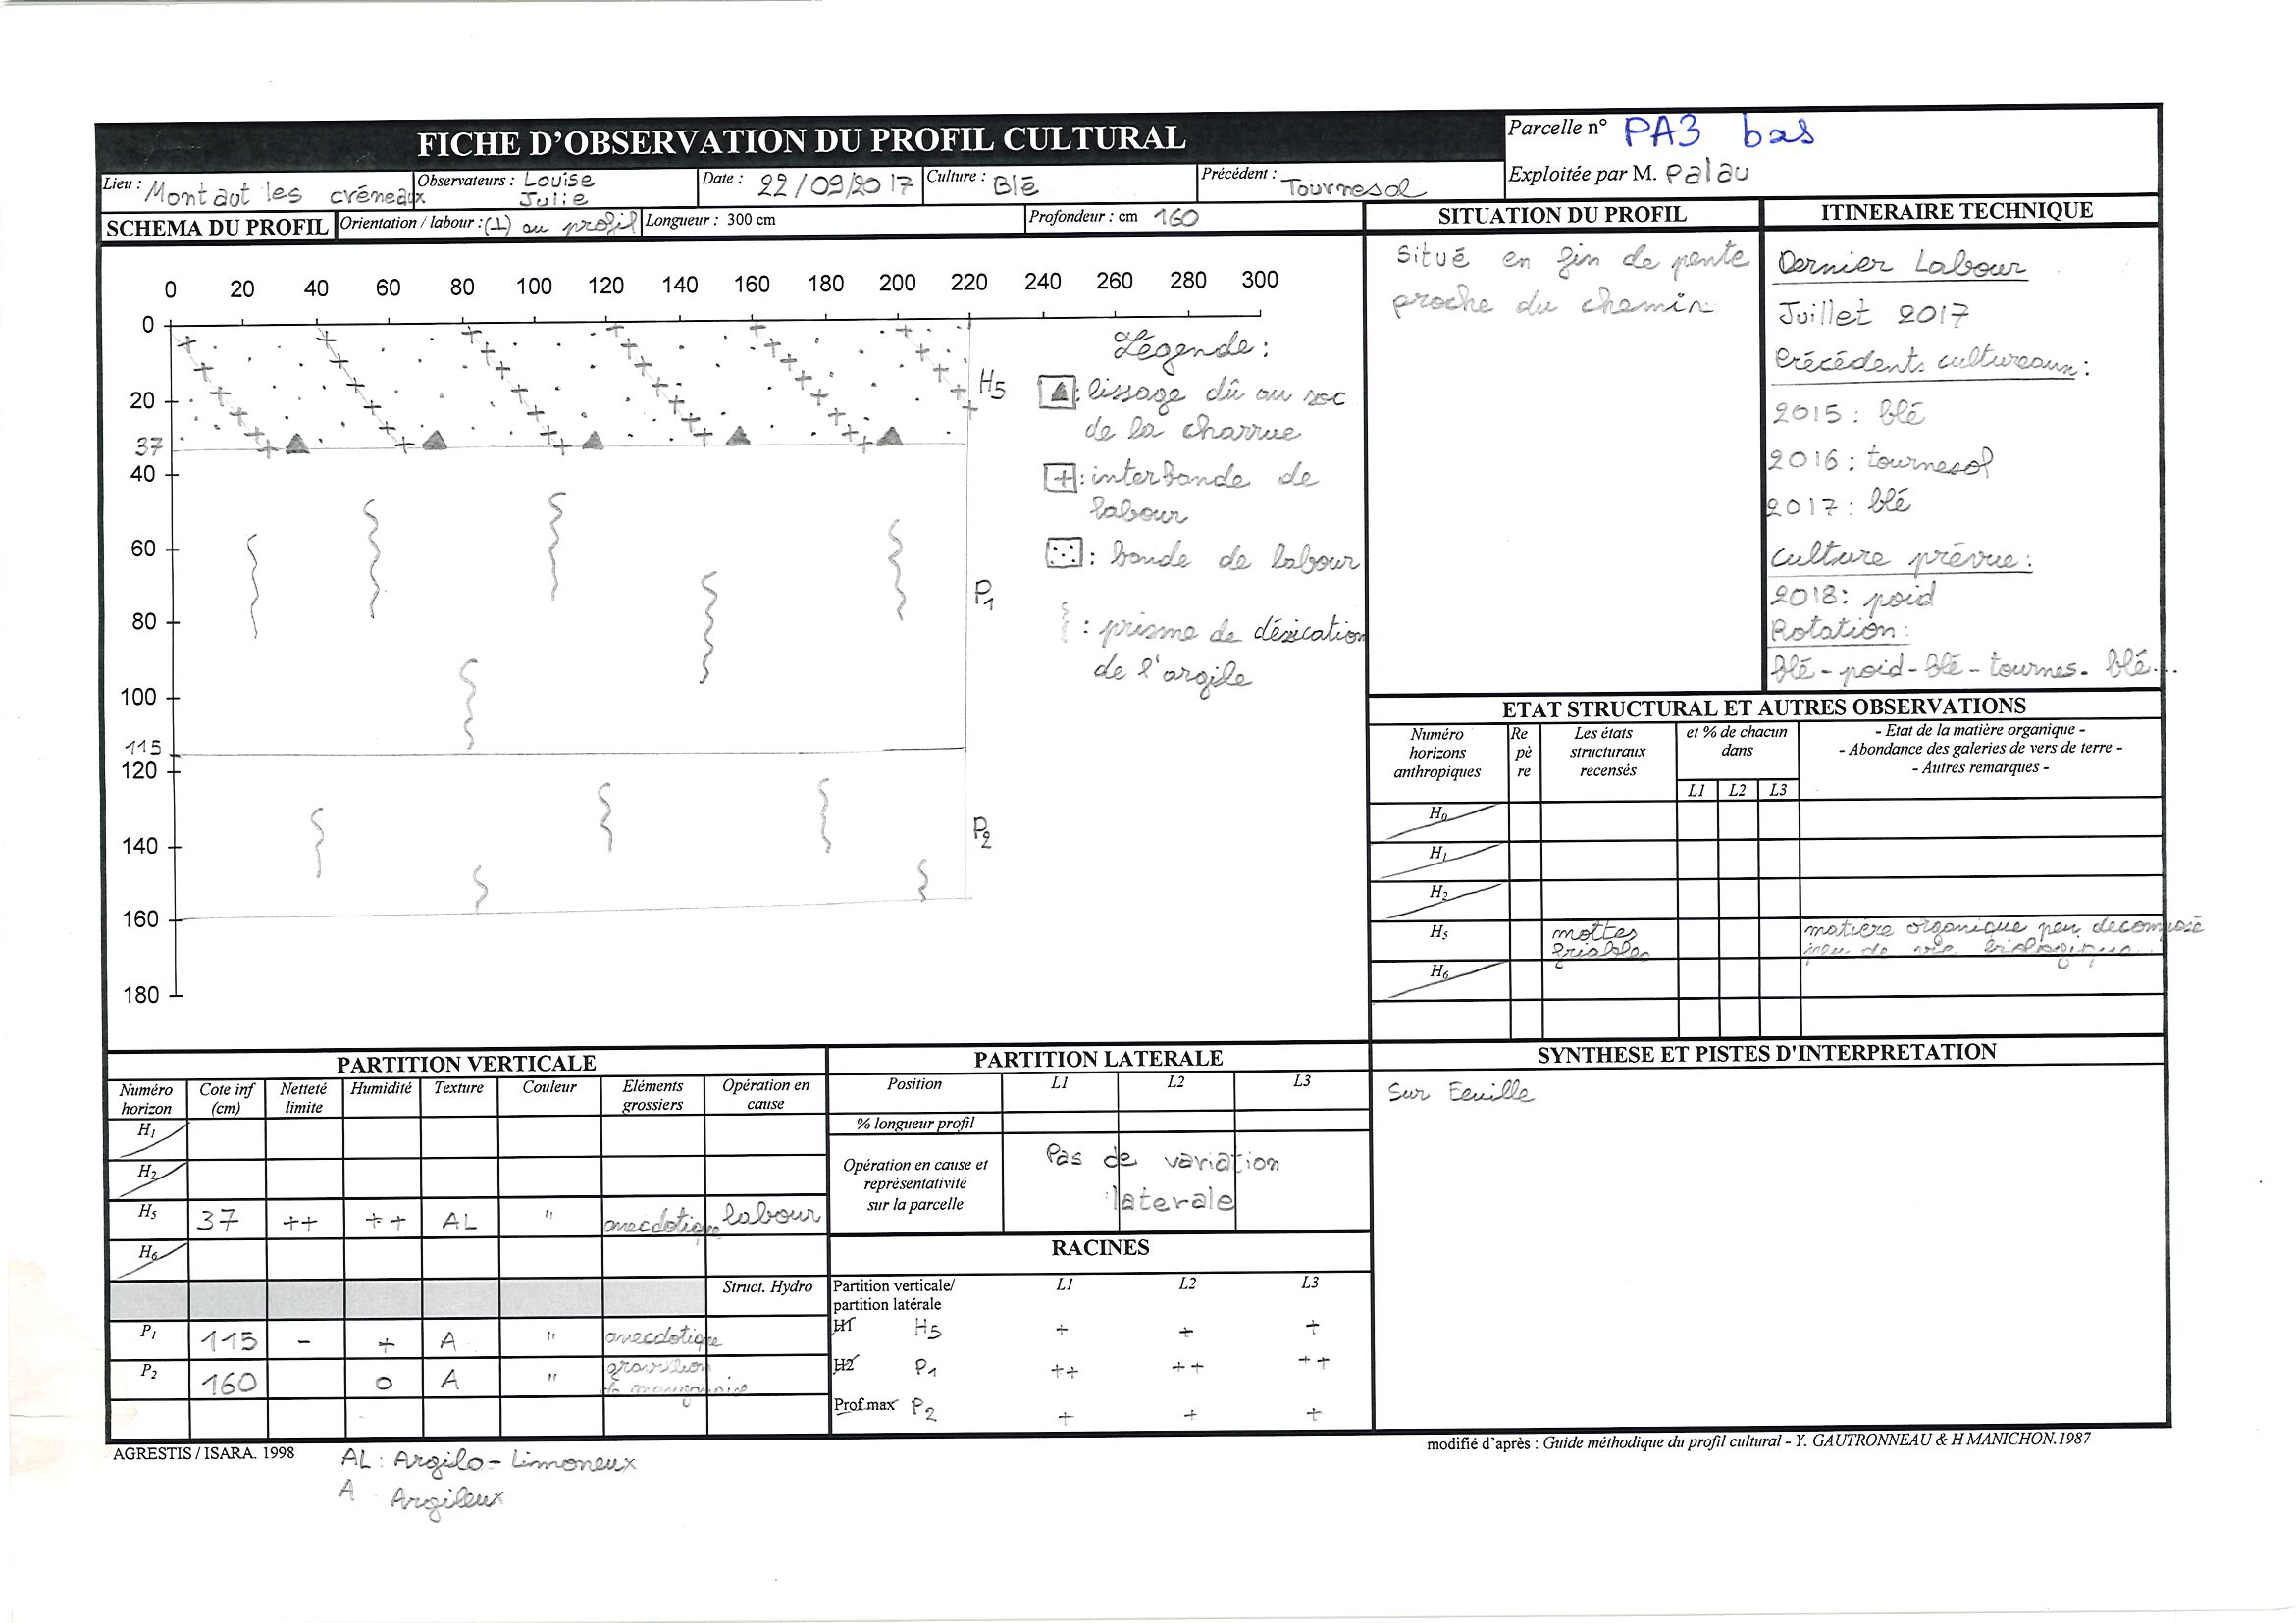 FICHE D'OBSERVATION DU PROFIL CULTURAL
Parcelle n° PA3 bas
Exploitée par M. Palau
Lieu : Montaut les créneaux
Observateurs : Louise
Julie
Date : 22/09/2017
Culture : Blé
Précédent : Tournesol
SCHEMA DU PROFIL
Orientation / labour : (⊥) au profil
Longueur : 300 cm
Profondeur : cm 160
SITUATION DU PROFIL
ITINERAIRE TECHNIQUE
0 20 40 60 80 100 120 140 160 180 200 220 240 260 280 300
0
20
37
40
60
80
100
115
120
140
160
180
H5
P1
P2
Légende :
▲ : lissage dû au soc
de la charrue
+ : interbande de
labour
: bande de labour
: prisme de désication
de l'argile
Situé en fin de pente
proche du chemin
Dernier Labour
Juillet 2017
Précédents cultureaux :
2015 : blé
2016 : tournesol
2017 : blé
Culture prévue :
2018 : poid
Rotation :
blé - poid - blé - tournes - blé...
ETAT STRUCTURAL ET AUTRES OBSERVATIONS
Numéro
horizons
anthropiques
Re
pè
re
Les états
structuraux
recensés
et % de chacun
dans
L1 L2 L3
- Etat de la matière organique -
- Abondance des galeries de vers de terre -
- Autres remarques -
H0
H1
H2
H5 mottes friables matière organique peu decomposé
peu de vie biologique
H6
PARTITION VERTICALE
Numéro horizon Cote inf (cm) Netteté limite Humidité Texture Couleur Eléments grossiers Opération en cause
H1
H2
H5 37 ++ ++ AL " anecdotique labour
H6
Struct. Hydro
P1 115 - + A " anecdotique
P2 160 0 A " gravillion
PARTITION LATERALE
Position L1 L2 L3
% longueur profil
Opération en cause et
représentativité
sur la parcelle
Pas de variation
laterale
RACINES
Partition verticale/
partition latérale
L1 L2 L3
H1 H5 + + +
H2 P1 ++ ++ ++
Prof max P2 + + +
SYNTHESE ET PISTES D'INTERPRETATION
Sur Feuille
AGRESTIS / ISARA. 1998
modifié d'après : Guide méthodique du profil cultural - Y. GAUTRONNEAU & H MANICHON.1987
AL : Argilo-Limoneux
A Argileux